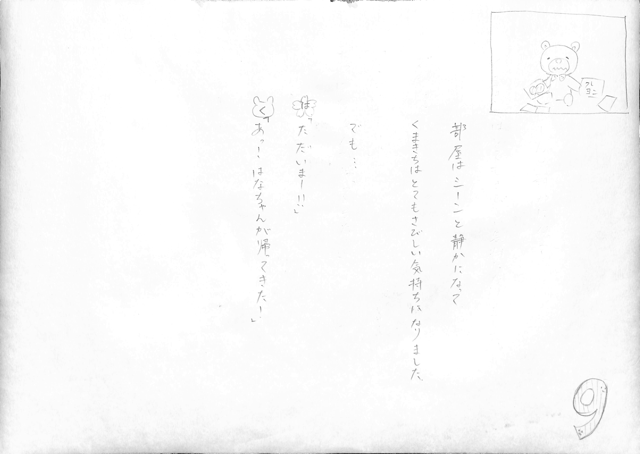 部屋はシーンと静かになって
くまきちはとてもさびしい気持ちになりました。
でも…
は「ただいまー!!」
く「あっ!はなちゃんが帰ってきた!」
9